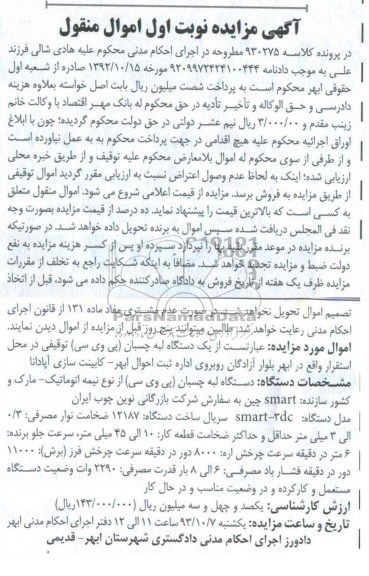 آگهی مزایده نوبت اول اموال منقول
در پرونده کلاسه ۹۳۰۲۷۵ مطروحه در اجرای احکام مدنی محکوم علیه هادی شالی فرزند
علی به موجب دادنامه ۹۲۰۹۹۷۲۴۲۴۱۰۰۴۴۴ مورخه ۱۳۹۲/۱۰/۱۵ صادره از شعبه اول
حقوقی ابهر محکوم است به پرداخت شصت میلیون ریال بابت اصل خواسته بعلاوه هزینه
دادرسی و حق الوکاله و تأخیر تأدیه در حق محکوم له بانک مهر اقتصاد با وکالت خانم
زینب مقدم و ۳/۰۰۰/۰۰۰ ریال نیم عشر دولتی در حق دولت محکوم گردیده؛ چون با ابلاغ
اوراق اجرائیه محکوم علیه هیچ اقدامی در جهت پرداخت محکوم به به عمل نیاورده است
و از طرفی از سوی محکوم له اموال بلامعارض محکوم علیه توقیف و از طریق خبره محلی
ارزیابی شده؛ اینک به لحاظ عدم وصول اعتراض نسبت به ارزیابی مقرر گردید اموال توقیفی
از طریق مزایده به فروش برسد. مزایده از قیمت اعلامی شروع می شود. اموال منقول متعلق
به کسی است که بالاترین قیمت را پیشنهاد نماید. ده درصد از قیمت مزایده بصورت وجه
نقد فی المجلس دریافت شده سپس اموال به برنده تحویل داده خواهد شد. در صورتیکه
برنده مزایده در موعد مقرر بهاء را نپردازد سپرده او پس از کسر هزینه مزایده به نفع
دولت ضبط و مزایده تجدید خواهد شد. مضافا به اینکه شکایت راجع به تخلف از مقررات
مزایده ظرف یک هفته از تاریخ فروش به دادگاه صادرکننده حکم داده می شود، قبل از اتخاذ
تصمیم اموال تحویل نخواهد شد. در صورت عدم مشتری مفاد ماده ۱۳۱ از قانون اجرای
احکام مدنی رعایت خواهد شد. طالبین میتوانند پنج روز قبل از مزایده از اموال دیدن نمایند.
اموال مورد مزایده: عبارتست از یک دستگاه لبه چسبان (پی وی سی) توقیفی در محل
استقرار واقع در ابهر بلوار آزادگان روبروی اداره ثبت احوال ابهر- کابینت سازی آپادانا
مشخصات دستگاه: دستگاه لبه چسبان (پی وی سی) از نوع نیمه اتوماتیک- مارک و
کشور سازنده: smart چین به سفارش شرکت بازرگانی نوین چوب ایران
مدل دستگاه: smart-۳dc سریال ساخت دستگاه: ۱۲۱۸۷ ضخامت نوار مصرفی: ۰/۳
الی ۳ میلی متر حداقل و حداکثر ضخامت قطعه کار: ۱۰ الی ۴۵ میلی متر، سرعت جلو برنده:
۶ متر در دقیقه سرعت چرخش اره: ۸۰۰۰ دور در دقیقه سرعت چرخش فرز (برش): ۱۱۰۰۰
دور در دقیقه فشار باد مصرفی: ۶ الی ۸ بار قدرت مصرفی: ۲۲۹۰ وات وضعیت دستگاه
مستعمل و کارکرده و در وضعیت مناسب و در حال کار
ارزش کارشناسی: یکصد و چهل و سه میلیون ریال (۱۴۳/۰۰۰/۰۰۰ریال)
تاریخ و ساعت مزایده: یکشنبه ۹۳/۱۰/۷ ساعت ۱۱ الی ۱۲ دفتر اجرای احکام مدنی ابهر
دادورز اجرای احکام مدنی دادگستری شهرستان ابهر- قدیمی